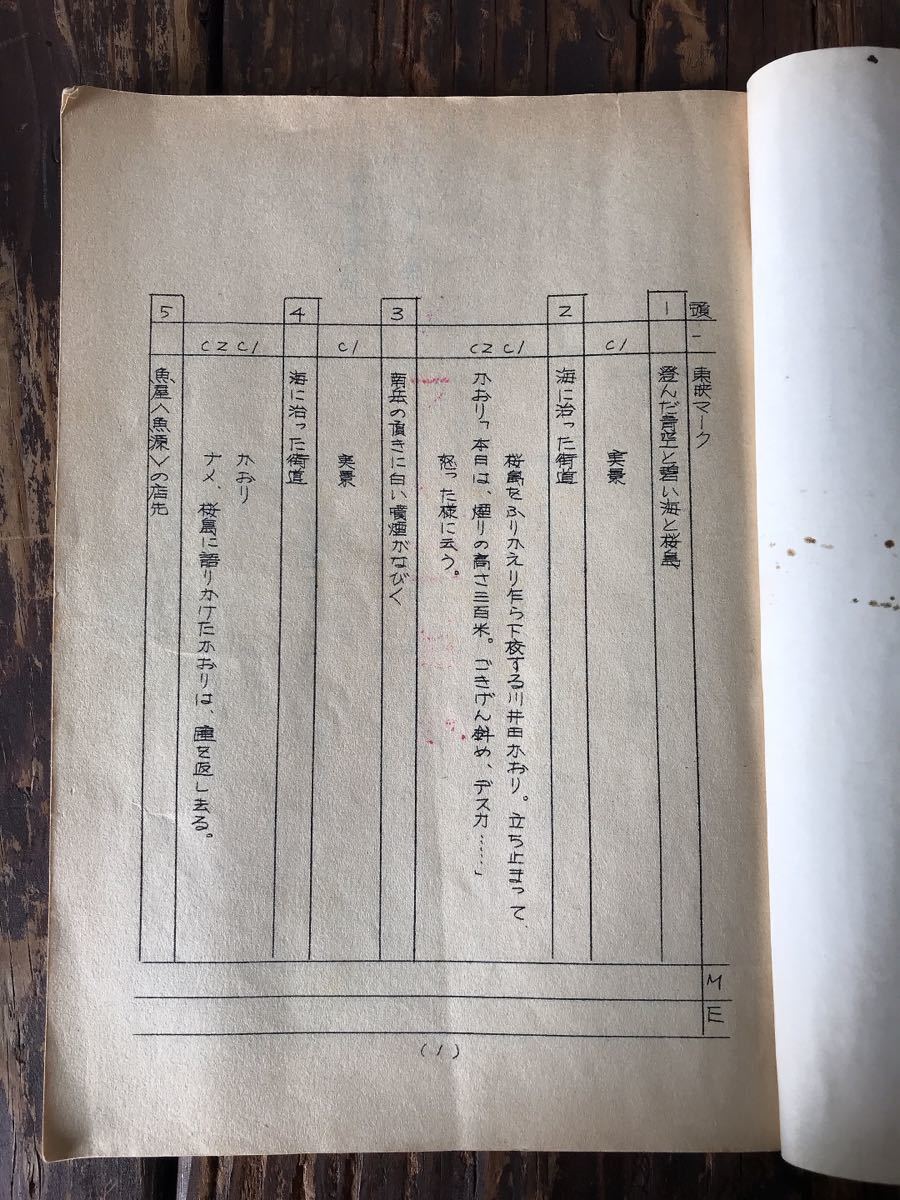 頭 一 東映マーク
1 澄んだ青空と碧い海と桜島
C1 実景
2 海に沿った街道
桜島をふりかえり乍ら下校する川井田かおり。立ち止まって、
C1 かおり「本日は、煙りの高さ三百米。ごきげん斜め、デスカ……」
C2 怒った様に云う。
3 南岳の頂きに白い噴煙がなびく
C1 実景
4 海に沿った街道
C1 かおり
C2 ナメ、桜島に語りかけたかおりは、踵を返し去る。
5 魚屋〈魚源〉の店先
M
E
(1)